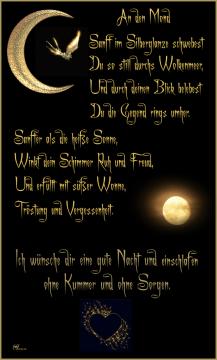 An den Mond
Sanft im Silberglanze schwebest
Du so still durchs Wolkenmeer,
Und durch deinen Blick belebest
Du die Gegend rings umher.
Sanfter als die heiße Sonne,
Winkt dein Schimmer Ruh und Freud,
Und erfüllt mit süßer Wonne,
Tröstung und Vergessenheit.
Ich wünsche dir eine gute Nacht und einschlafen
ohne Kummer und ohne Sorgen.